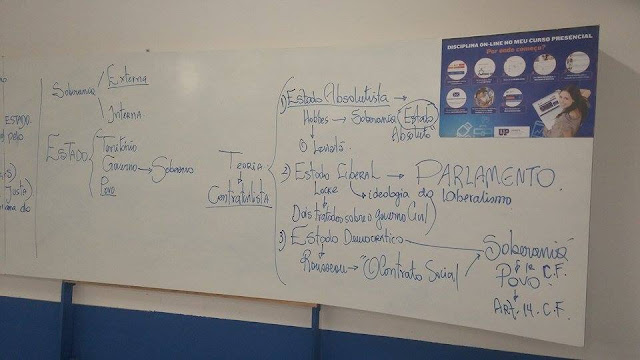 ESTADO.
pelo
Justa)
do
Soberania
Externa
Interna
ESTADO
Território
Governo → Soberano
Povo
Teoria
Contratualista
1) Estado Absolutista →
Hobbes → Soberania (Estado
Absoluto
O Leviatã
2) Estado Liberal → PARLAMENTO.
Locke ideologia do Liberalismo
Dois tratados sobre o governo Civil
3) Estado Democrático
Rousseau → "O Contrato Social
Soberania
POVO 1º C.F.
Art. 14. C.F.
DISCIPLINA ON-LINE NO MEU CURSO PRESENCIAL
Por onde começo?
UP